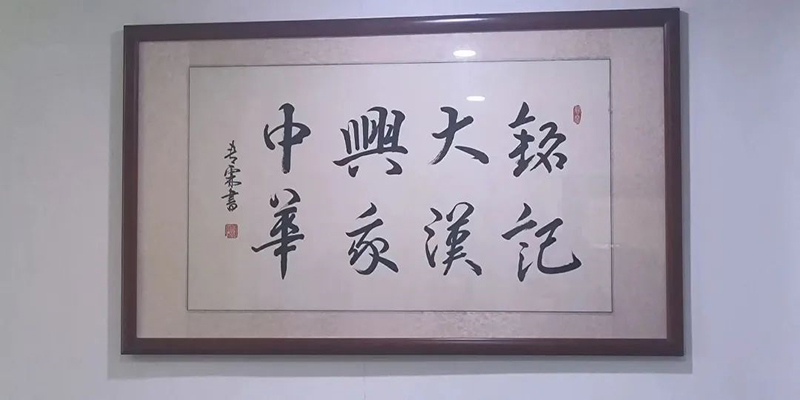 銘記
大漢
興我
中華
書